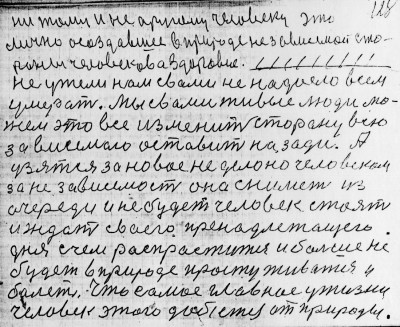 128
ни тому и не другому человеку это
лично создавшее в природе независемой сто-
роны человекова здоровие.
не ужели нам свами не надоело всем
умерат. Мы свами живые люди мо-
жем это все изменит сторону всю
зависемаго оставит на зади. А
узятся за новое не делоно человеком
за не зависемост она снимет из
очереди и небудет человек стоят
и ждат своего пренадлежащего
дня с чем распраститя и болше не
будет в природе просту живатя и
болет. Что самое главное у жизни
человек этого добъется от природы.